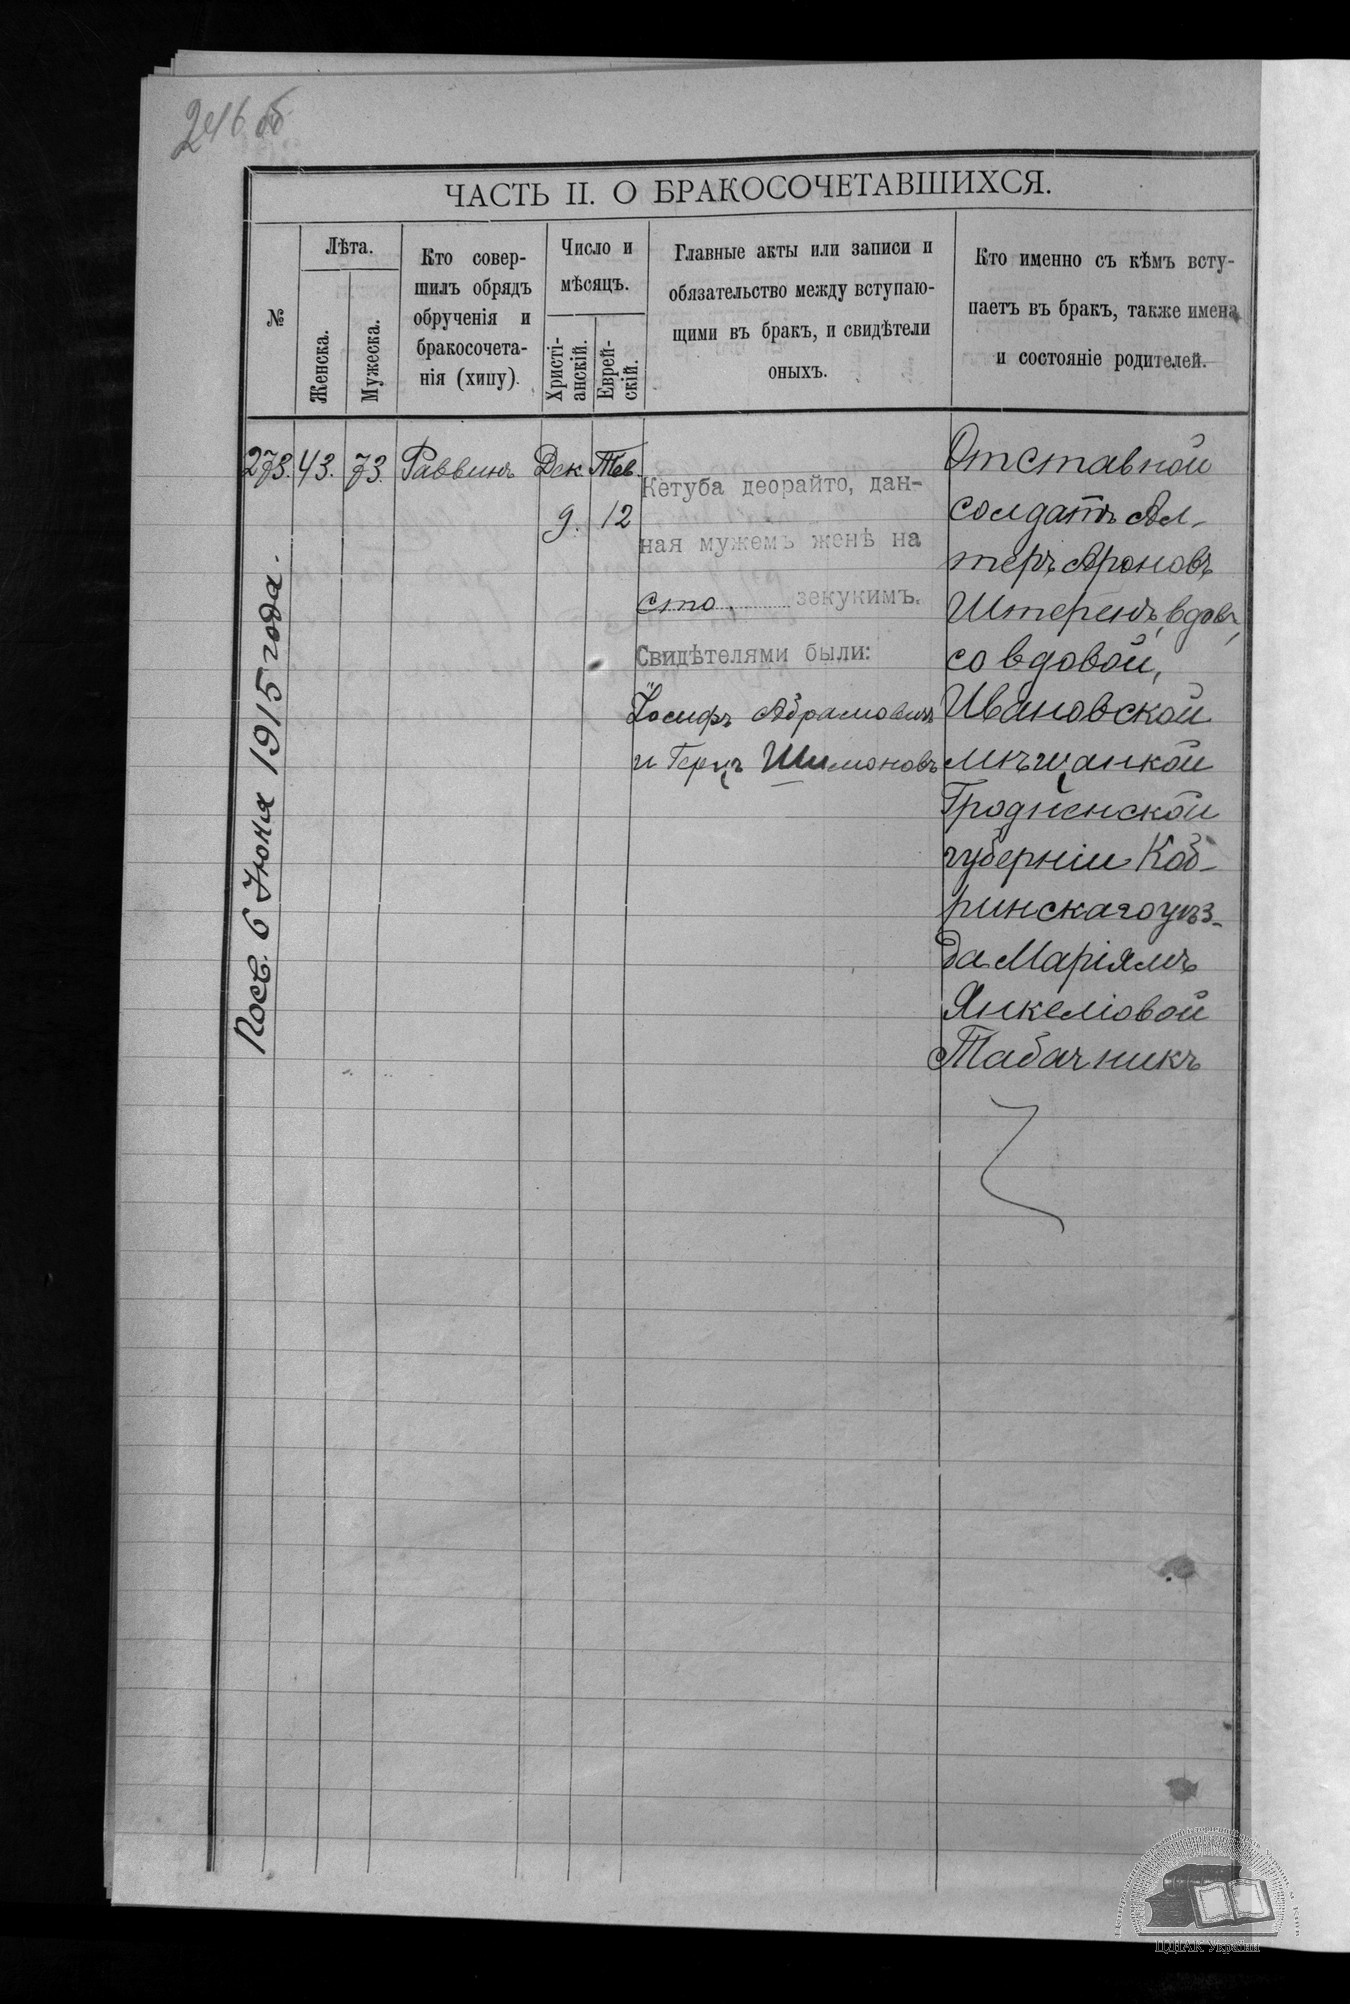 246 об
ЧАСТЬ II. О БРАКОСОЧЕТАВШИХСЯ.
№
Лѣта.
Женска.
Мужеска.
Кто совер-
шилъ обрядъ
обрученія и
бракосочета-
нія (хипу).
Число и
мѣсяцъ.
Христі-
анскій.
Еврей-
скій.
Главные акты или записи и
обязательство между вступаю-
щими въ бракъ, и свидѣтели
оныхъ.
Кто именно съ кѣмъ всту-
паетъ въ бракъ, также имена
и состояніе родителей.
273.
43.
73.
Раввинъ
Дек.
9.
Тев.
12
Кетуба деорайто, дан-
ная мужемъ женѣ на
сто, зекукимъ.
Свидѣтелями были:
Іосифъ Абрамовичъ
и Герцъ Шимоновъ
Отставной
солдатъ Ал-
теръ Ароновъ
Штеренъ, вдов.,
со вдовой,
Ивановской
мѣщанкой
Гродненской
губерніи Коб-
ринскаго уѣз-
да Маріямъ
Янкеліовой
Табачникъ
6 Іюня 1915 года.
ЦДІАК України